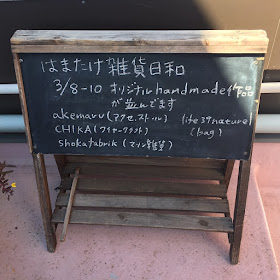 はまたけ雑貨日和
3/8-10 オリジナルhandmade作品
が並んでます
akemaru(アクセ.ストール)
life39nature(bag)
CHIKA(ワイヤークラフト)
shokafabrik(マリン雑貨)